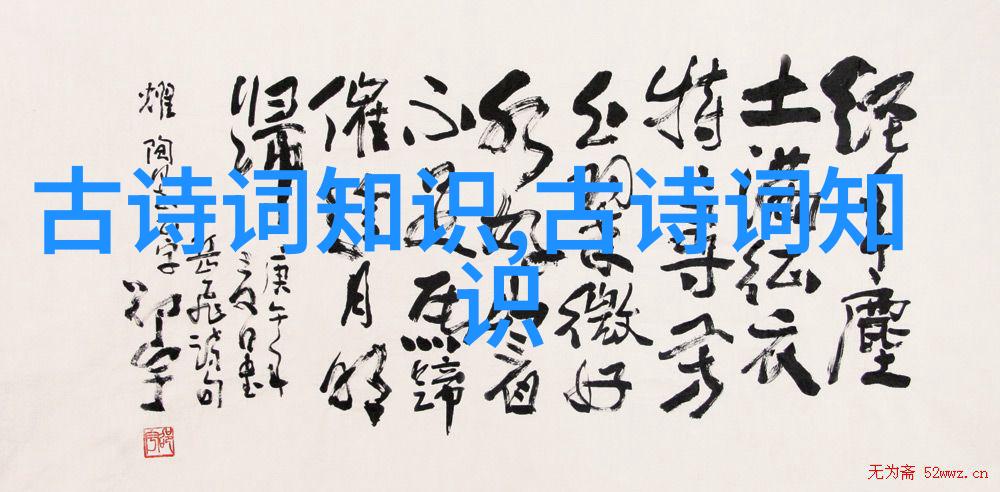 古诗词知识,古诗词知
识
經年塵
土滿征衣
特特尋芳
上翠微好
水好山看
不足馬蹄
催趁月明
歸
庚午年
岳飛詩句
无为斋 52wwz.cn